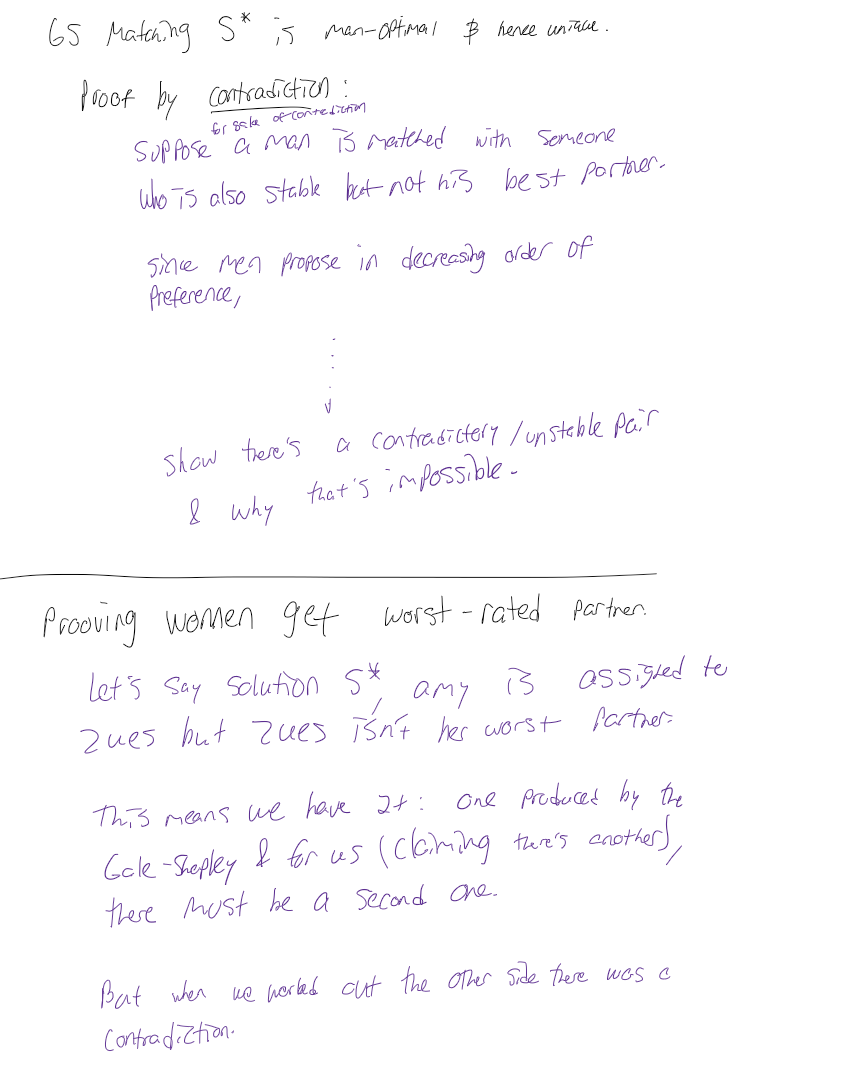 GS Matching S* is man-optimal & hence unique.
Proof by contradiction:
for sake of contradiction
Suppose a man is matched with someone
who is also stable but not his best partner.
Since men propose in decreasing order of
preference,
Show there's a contradictory/unstable pair
& why that's impossible.
Prooving women get worst-rated partner.
Let's say solution S*, amy is assigned to
Zues but Zues isn't her worst partner.
This means we have 2+: one produced by the
Gale-Shapley & for us (claiming there's another),
there must be a second one.
But when we worked out the other side there was a
contradiction.